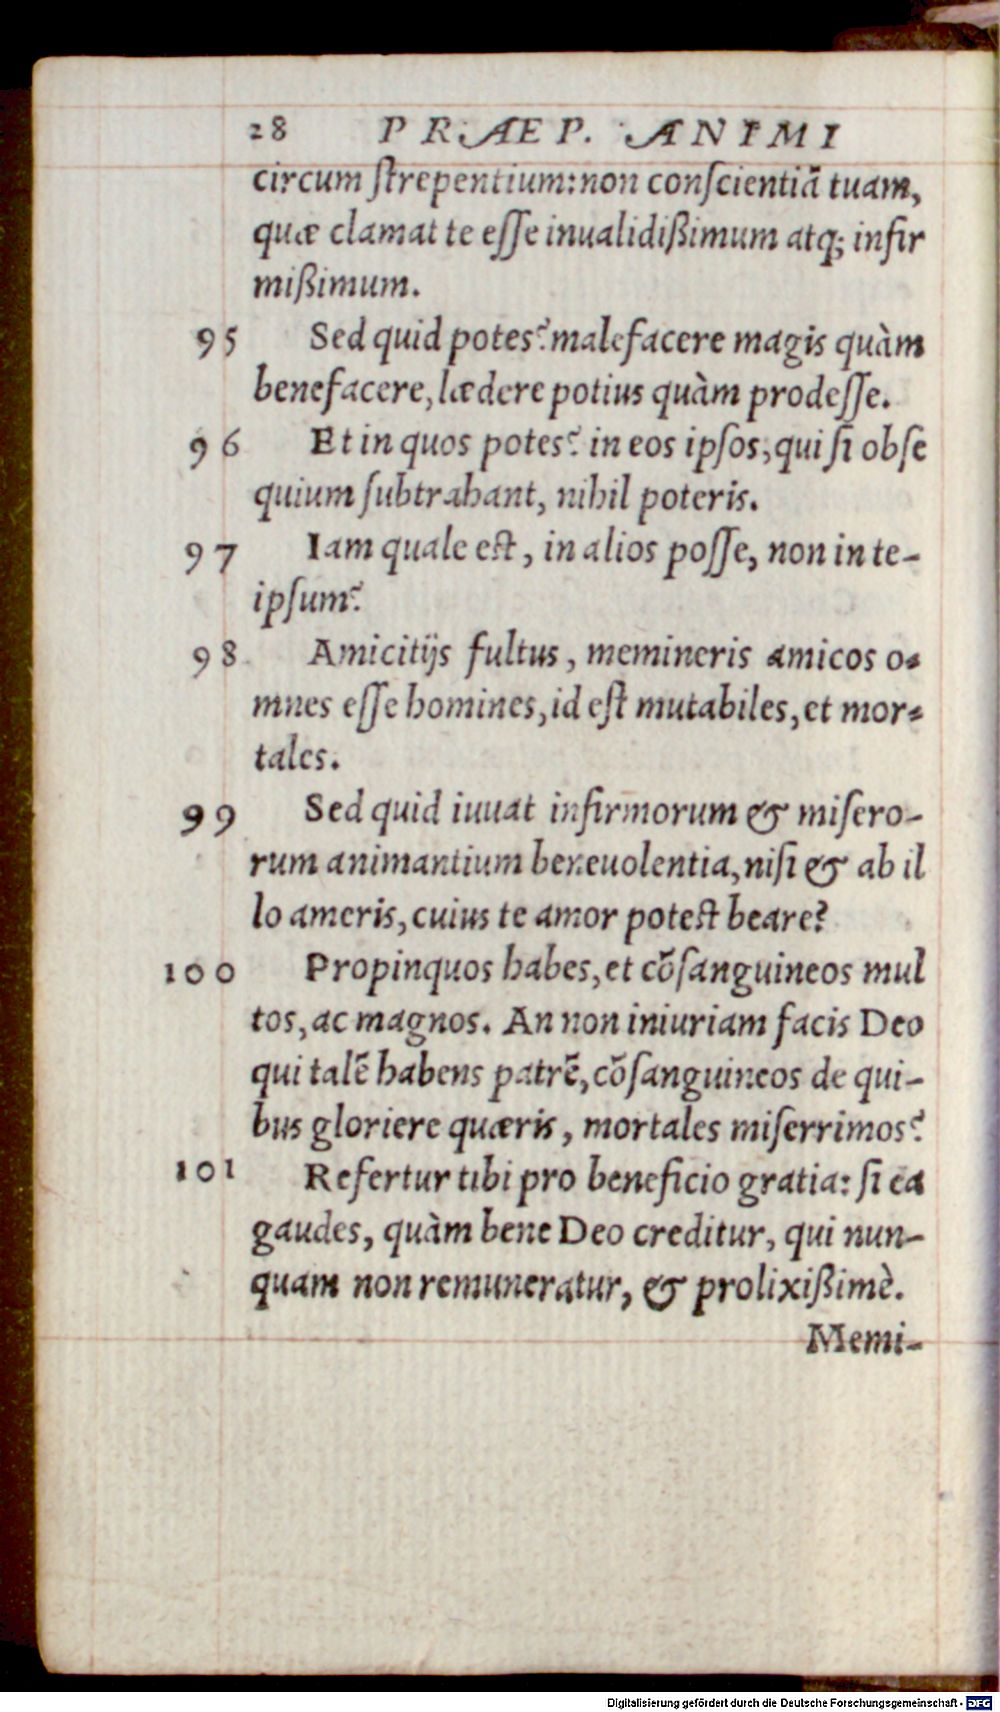 28 PRÆP. ANIMI
circum ſtrepentium: non conſcientiā tuam,
quæ clamat te eſſe inualidißimum atq; infir
mißimum.
95 Sed quid potes? malefacere magis quàm
benefacere, lædere potius quàm prodeſſe.
96 Et in quos potes? in eos ipſos, qui ſi obſe
quium ſubtrahant, nihil poteris.
97 Iam quale eſt, in alios poſſe, non in te-
ipſum?
98 Amicitijs fultus, memineris amicos o-
mnes eſſe homines, id eſt mutabiles, et mor-
tales.
99 Sed quid iuuat infirmorum & miſero-
rum animantium beneuolentia, niſi & ab il
lo ameris, cuius te amor poteſt beare?
100 Propinquos habes, et cōſanguineos mul
tos, ac magnos. An non iniuriam facis Deo
qui talē habens patrē, cōſanguineos de qui-
bus gloriere quæris, mortales miſerrimos?
101 Refertur tibi pro beneficio gratia: ſi ea
gaudes, quàm bene Deo creditur, qui nun-
quam non remuneratur, & prolixißimè.
Memi-
Digitalisierung gefördert durch die Deutsche Forschungsgemeinschaft - DFG